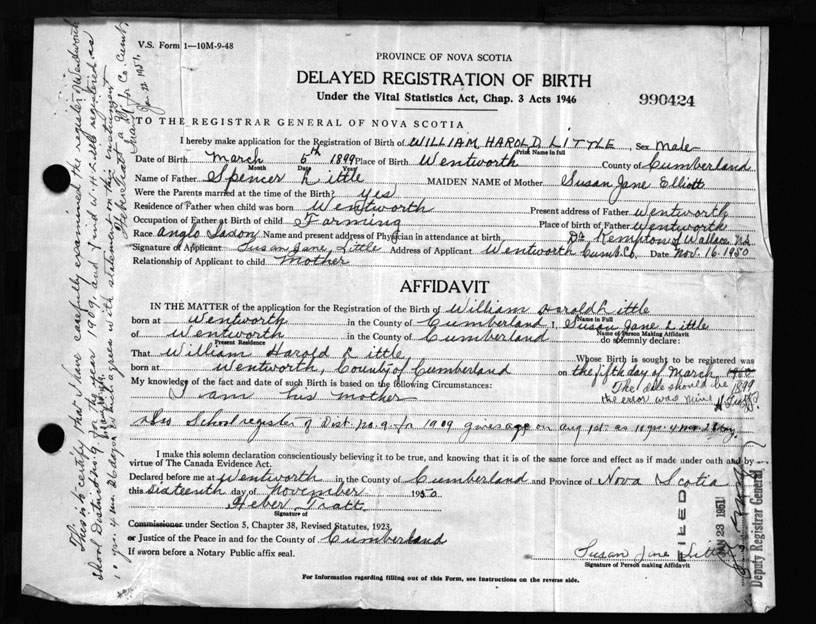 V.S. Form 1—10M-9-48
PROVINCE OF NOVA SCOTIA
DELAYED REGISTRATION OF BIRTH
Under the Vital Statistics Act, Chap. 3 Acts 1946
990424
TO THE REGISTRAR GENERAL OF NOVA SCOTIA
I hereby make application for the Registration of Birth of WILLIAM HAROLD LITTLE, Sex Male
Print Name in full
Date of Birth March 5th 1899 Place of Birth Wentworth County of Cumberland
Month Date Year
Name of Father Spencer Little MAIDEN NAME of Mother Susan Jane Elliott
Were the Parents married at the time of the Birth? yes
Residence of Father when child was born Wentworth Present address of Father Wentworth
Occupation of Father at Birth of child Farming Place of birth of Father Wentworth
Race Anglo Saxon Name and present address of Physician in attendance at birth, Dr Kempton of Wallace N.S.
Signature of Applicant Susan Jane Little Address of Applicant Wentworth Cumb. Co. Date Nov. 16. 1950
Relationship of Applicant to child Mother
AFFIDAVIT
IN THE MATTER of the application for the Registration of Birth of William Harold Little
Name in Full
born at Wentworth in the County of Cumberland I, Susan Jane Little
Name of Person Making Affidavit
of Wentworth in the County of Cumberland do solemnly declare:
Present Residence
That William Harold Little Whose Birth is sought to be registered was
born at Wentworth, County of Cumberland on the fifth day of March, 1950
My knowledge of the fact and date of such Birth is based on the following Circumstances: The date should be 1899
I am his mother the error was mine
School register of Dist. No. 9 for 1909 gives age on Aug 1st. as 10 yrs. 4 mo. 26 day.
I make this solemn declaration conscientiously believing it to be true, and knowing that it is of the same force and effect as if made under oath and by
virtue of The Canada Evidence Act.
Declared before me at Wentworth in the County of Cumberland and Province of Nova Scotia
this sixteenth day of November 1950.
Heber Tratt
Signature of
Commissioner under Section 5, Chapter 38, Revised Statutes, 1923,
or Justice of the Peace in and for the County of Cumberland
If sworn before a Notary Public affix seal.
Susan Jane Little
Signature of Person making Affidavit
For Information regarding filling out of this Form, see Instructions on the reverse side.
This is to certify that I have carefully examined the register of Wentworth
School District No 9. for the year 1909, and find W. H. Little registered as
10 yrs. 4 mo. 26 days which agrees with statement on this instrument
Jan 22 1951
FILED
JAN 23 1951
Deputy Registrar General